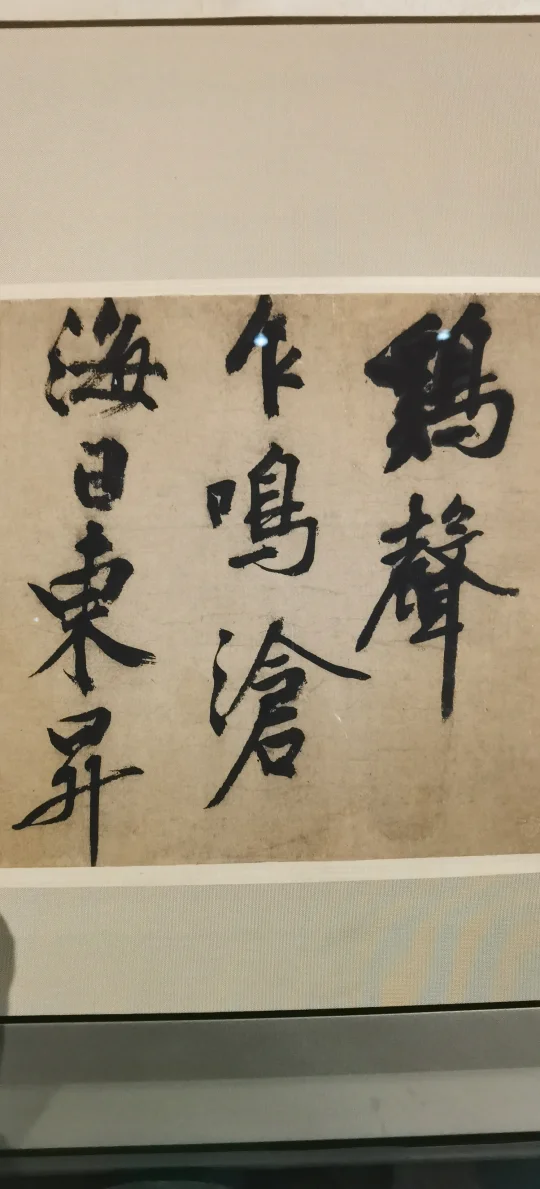 鷄聲
乍鳴滄
海日東昇